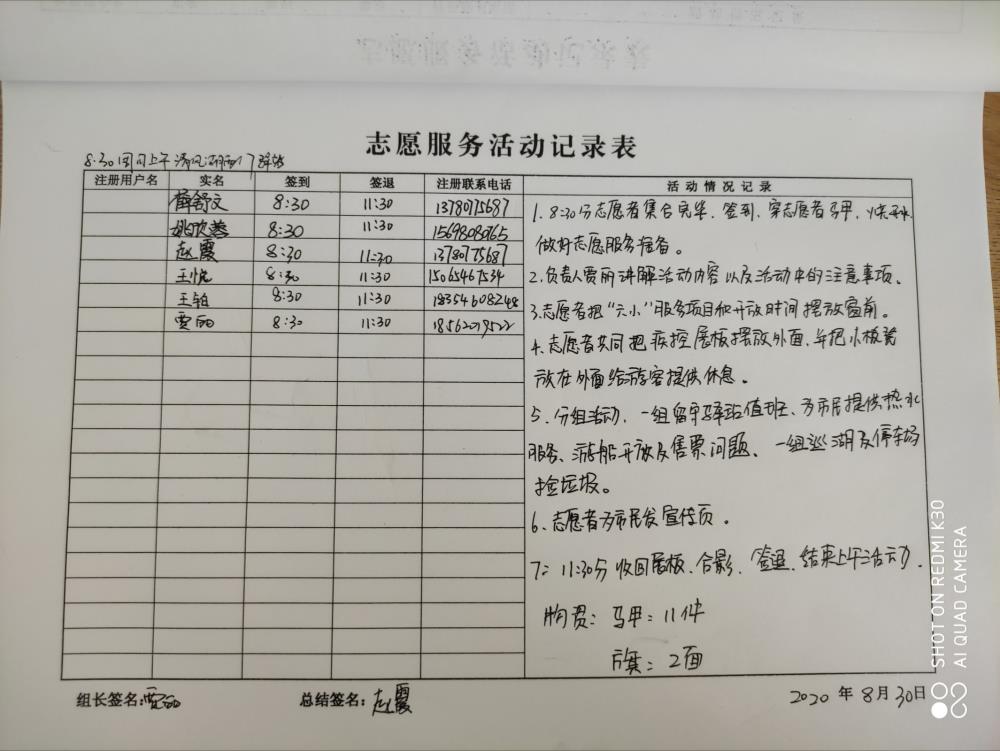 志愿服务活动记录表
8.30 周日上午 清风湖南门驿站
注册用户名 实名 签到 签退 注册联系电话 活动情况记录
薛舒文 8:30 11:30 13780775687
姚欣蕊 8:30 11:30 1569808765
赵霞 8:30 11:30 13780775687
王悦 8:30 11:30 15065467534
王铂 8:30 11:30 18354608248
贾丽 8:30 11:30 18562019522
1. 8:30分志愿者集合完毕、签到、穿志愿者马甲、烧开水
做好志愿服务准备。
2. 负责人贾丽讲解活动内容以及活动中的注意事项。
3.志愿者把“六小”服务项目和开放时间摆放窗前。
4、志愿者共同把疾控展板摆放外面、并把小板凳
放在外面给游客提供休息。
5、分组活动、一组留守驿站值班、为市民提供热水
服务、游船开放及售票问题、一组巡湖及停车场
捡垃圾。
6、志愿者为市民发宣传页。
7: 11:30分收回展板、合影、签退、结束上午活动.
物资: 马甲: 11件
旗: 2面
组长签名:贾丽 总结签名:赵霞 2020年8月30日
SHOT ON REDMI K30
AI QUAD CAMERA